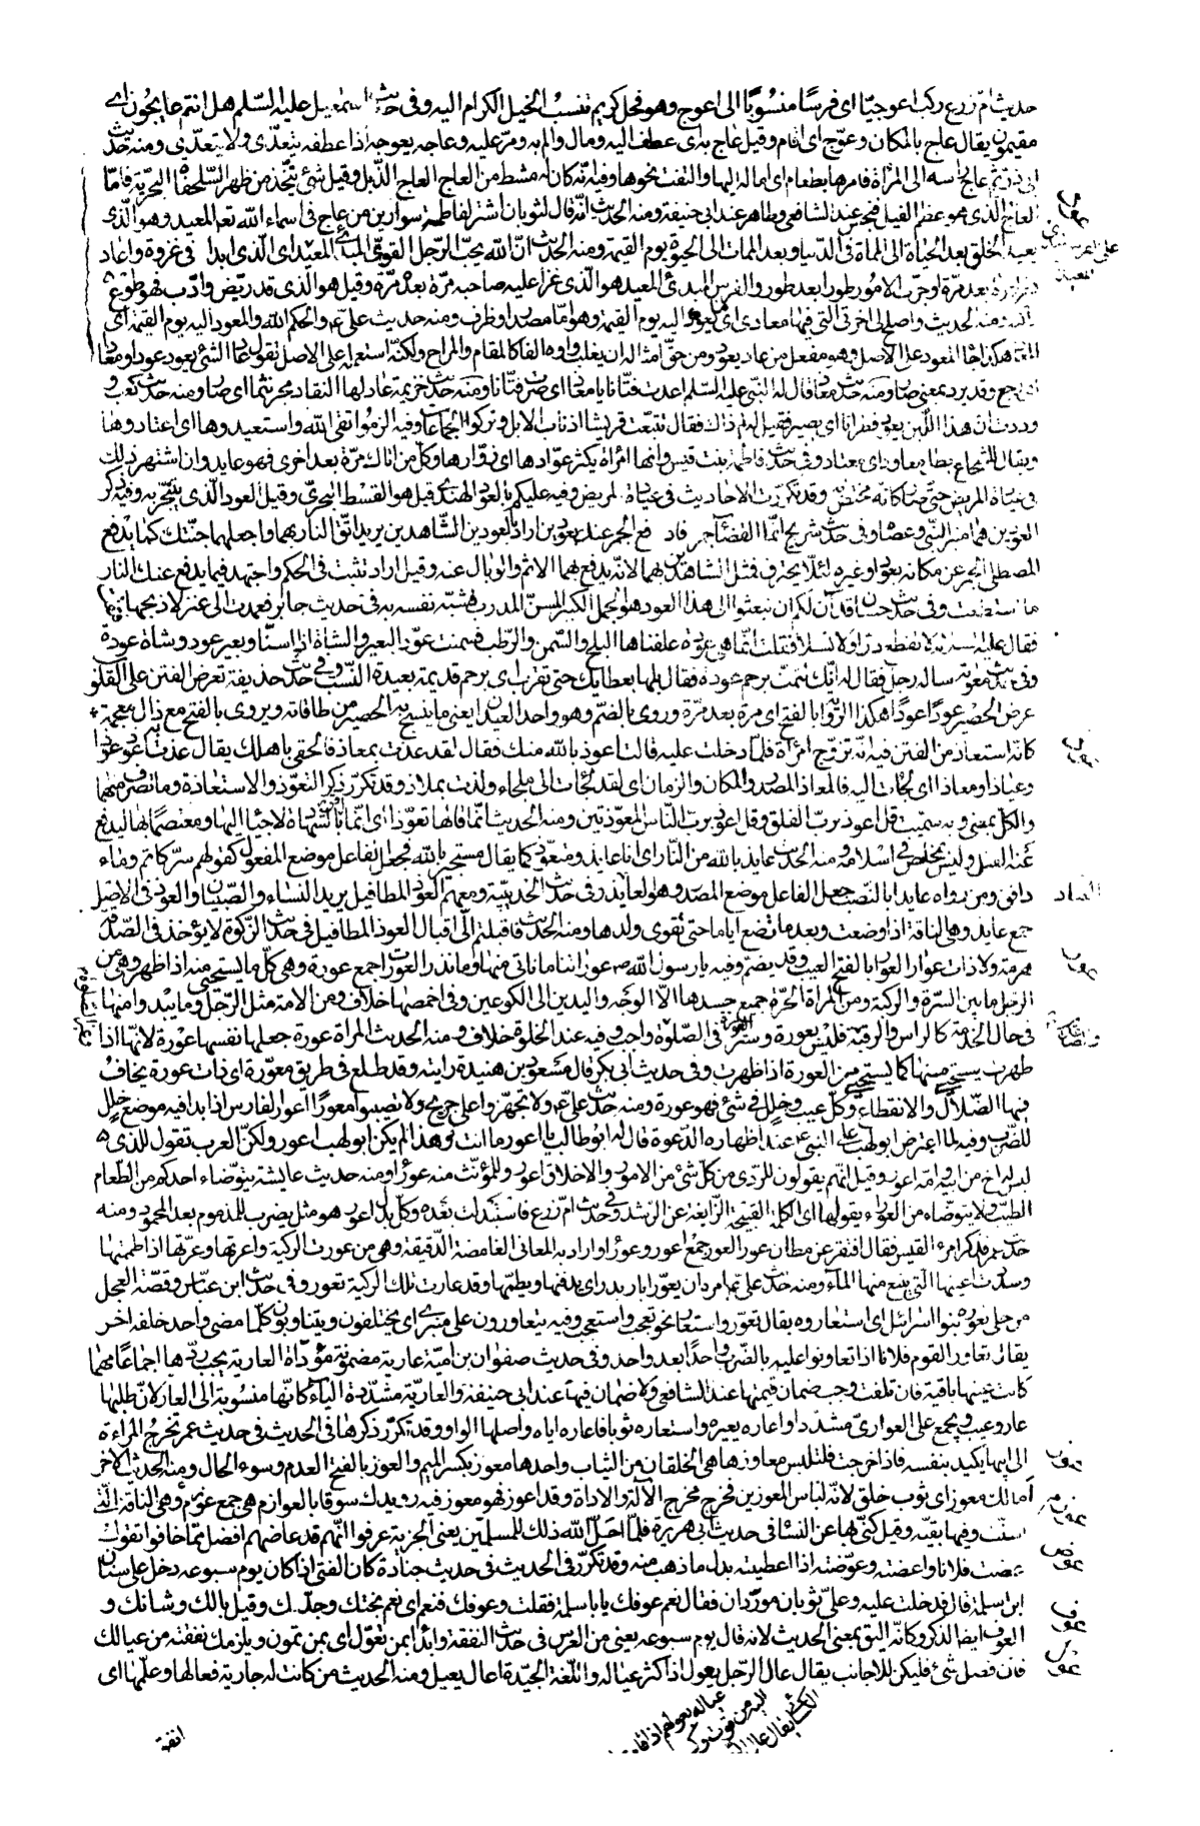 حديث ام زرع ركب اعوجيا اى فرسا منسوبا الى اعوج وهو فحل كريم تنسب الخيل الكرام اليه وفى حديث اسمعيل عليه السلم هل انتم عايجون اى
مقيمون يقال عاج بالمكان وعوج اى اقام وقيل عاج به اى عطف اليه ومال والم به ومر عليه وعاجه يعوجه اذا عطفه يتعدى ولا يتعدى ومنه حديث
ابى ذر ثم عاج راسه الى المراة فامرها بطعام اى اماله اليها والتفت نحوها وفيه انه كان له مشط من العاج العاج الذبل وقيل شئ يتخذ من ظهر السلحفاة البحرية فاما
العاج الذى هو عظم الفيل فنجس عند الشافعى وطاهر عند ابى حنيفة ومنه الحديث انه قال لثوبان اشتر لفاطمة سوارين من عاج فى اسماء الله تعم المعيد وهو الذى
يعيد الخلق بعد الحياة الى المماة فى الدنيا وبعد الممات الى الحيوة يوم القيمة ومنه الحديث ان الله يحب الرجل القوى المبدئ المعيد اى الذى ابدا فى غزوة واعاد
فغزا مرة بعد مرة او جرب الامور طورا بعد طور والفرس المبدئ المعيد هو الذى غزا عليه صاحبه مرة بعد مرة وقيل هو الذى قد ريض وادب فهو طوع
راكبه ومنه الحديث واصلح لى اخرتى التى فيها معادى اى ما يعود اليه يوم القيمة وهو اما مصدر او ظرف ومنه حديث على عم والحكم الله والمعود اليه يوم القيمة اى
المعاد هكذا جا المعود على الاصل وهو مفعل من عاد يعود ومن حق امثاله ان يقلب واوه الفا كالمقام والمراح ولكنه استعمله على الاصل تقول عاد الشئ يعود عودا ومعادا
اى رجع وقد يرد بمعنى صار ومنه حديث معاذ قال له النبى عليه السلم اعدت فتانا يا معاذ اى صرت فتانا ومنه حديث خزيمة عاد لها النقاد مجرنثما اى صار ومنه حديث كعب
وددت ان هذا اللبن يعود قطرانا اى يصير فقيل له لم ذلك فقال تتبعت قريش اذناب الابل وتركوا الجماعات وفيه الزموا تقى الله واستعيدوها اى اعتادوها
ويقال للشجاع بطل معاود اى معتاد وفى حديث فاطمة بنت قيس فانها امراة يكثر عوادها اى زوارها وكل من اتاك مرة بعد اخرى فهو عايد وان اشتهر ذلك
فى عيادة المريض حتى صار كانه مختص به وقد تكررت الاحاديث فى عيادة المريض وفيه عليكم بالعود الهندى قيل هو القسط البحرى وقيل العود الذى يتبخر به وفيه ذكر
العودين هما منبر النبى وعصاه وفى حديث شريح انما القضا جمر فادفع الجمر عنك بعودين اراد بالعودين الشاهدين يريد اتق النار بهما واجعلهما جنتك كما يدفع
المصطلى الجمر عن مكانه بعود او غيره لئلا يحترق فمثل الشاهدين بهما لانه يدفع بهما الاثم والوبال عنه وقيل اراد تثبت فى الحكم واجتهد فيما يدفع عنك النار
ما استطعت وفى حديث حسان قد آن لكم ان تبعثوا الى هذا العود هو الجمل الكبير المسن المدرب فشبه نفسه به فى حديث جابر فعمدت الى عنز لاذبحها فثغت
فقال عليه السلم لا تقطع درا ولا نسلا فقلت انما هى عودة علفناها البلح والرطب فسمنت عود البعير والشاة اذا اسنا وبعير عود وشاة عودة
وفى حديث معوية ساله رجل فقال له انك لتمت برحم عودة فقال بلها بعطايك حتى تقرب اى برحم قديمة بعيدة النسب وفى حديث حذيفة تعرض الفتن على القلوب
عرض الحصير عودا عودا هكذا الرواية بالفتح اى مرة بعد مرة وروى بالضم وهو واحد العيدان يعنى ما ينسج به الحصير من طاقاته ويروى بالفتح مع ذال معجمة
كانه استعاذ من الفتن فيه انه تزوج امراة فلما دخلت عليه قالت اعوذ بالله منك فقال لقد عذت بمعاذ فالحقى باهلك يقال عذت به اعوذ عوذا
وعياذا ومعاذا اى لجات اليه فالمعاذ المصدر والمكان والزمان اى لقد لجات الى ملجاء ولذت بملاذ وقد تكرر ذكر التعوذ والاستعاذة وما تصرف منهما
والكل بمعنى وبه سميت قل اعوذ برب الفلق وقل اعوذ برب الناس المعوذتين ومنه الحديث انما قالها تعوذا اى انما اقر بالشهادة لاجئا اليها ومعتصما بها ليدفع
عنه القتل وليس بمخلص فى اسلامه ومنه الحديث عايذ بالله من النار اى انا عايذ ومتعوذ كما يقال مستجير بالله فجعل الفاعل موضع المفعول كقولهم سر كاتم وماء
دافق ومن رواه عايذا بالنصب جعل الفاعل موضع المصدر وهو العياذ فى حديث الحديبية ومعهم العوذ المطافيل يريد النساء والصبيان والعوذ فى الاصل
جمع عايذ وهى الناقة اذا وضعت وبعد ما تضع اياما حتى تقوى ولدها ومنه الحديث فاقبلتم الى اقبال العوذ المطافيل فى حديث الزكوة لا يؤخذ فى الصدقة
هرمة ولا ذات عوار العوار بالفتح العيب وقد يضم وفيه يا رسول الله ص عوراتنا ما ناتى منها وما نذر العورات جمع عورة وهى كل ما يستحيى منه اذا ظهر وهى من
الرجل ما بين السرة والركبة ومن المراة الحرة جميع جسدها الا الوجه واليدين الى الكوعين وفى اخمصها خلاف ومن الامة مثل الرجل وما يبدو منها
فى حال الخدمة كالراس والرقبة فليس بعورة وستر العورة فى الصلوة واجب وفيه عند الخلوة خلاف ومنه الحديث المراة عورة جعلها نفسها عورة لانها اذا
ظهرت يستحيى منها كما يستحيى من العورة اذا ظهرت وفى حديث ابى بكر قال مسعود بن هنيدة رايته وقد طلع فى طريق معورة اى ذات عورة يخاف
فيها الضلال والانقطاع وكل عيب وخلل فى شئ فهو عورة ومنه حديث على عم ولا تجهزوا على جريح ولا تصيبوا معورا اعور الفارس اذا بدا فيه موضع خلل
للضرب وفيه لما اعترض ابو لهب على النبى عم عند اظهاره الدعوة قال له ابو طالب يا اعور ما انت وهذا لم يكن ابو لهب اعور ولكن العرب تقول للذى
ليس له اخ من ابيه وامه اعور وقيل انهم يقولون للردى من كل شئ من الامور والاخلاق اعور وللمؤنث منه عوراء ومنه حديث عايشة يتوضاء احدكم من الطعام
الطيب ولا يتوضاه من العوراء يقولها اى الكلمة القبيحة الزايغة عن الرشد وفى حديث ام زرع فاستبدلت بعده وكل بدل اعور هو مثل يضرب للمذموم بعد المحمود ومنه
حديث عمر وذكر امرء القيس فقال افتقر عن معان عور العور جمع اعور وعوراء واراد به المعانى الغامضة الدقيقة وهى من عورت الركية واعرتها وعرتها اذا طممتها
وسددت اعينها التى ينبع منها الماء ومنه حديث على عم امره ان يعور ابار بدر اى يدفنها ويطمها وقد عارت تلك الركية تعور وفى حديث ابن عباس وقصة العجل
من حلى تعوره بنوا اسرائيل اى استعاروه يقال تعور واستعار نحو تعجب واستعجب وفيه يتعاورون على منبرى اى يختلفون ويتناوبون كلما مضى واحد خلفه اخر
يقال تعاور القوم فلانا اذا تعاونوا عليه بالضرب واحدا بعد واحد وفى حديث صفوان بن امية عارية مضمونة مؤداة العارية يجب ردها اجماعا مهما
كانت عينها باقية فان تلفت وجب ضمان قيمتها عند الشافعى ولا ضمان فيها عند ابى حنيفة والعارية مشددة الياء كانها منسوبة الى العار لان طلبها
عار وعيب ويجمع على العوارى مشددا واعاره يعيره واستعاره ثوبا فاعاره اياه واصلها الواو وقد تكرر ذكرها فى الحديث فى حديث عمر تخرج المراءة
الى ابيها يكيد بنفسه فاذا خرجت فلتلبس معاوزها هى الخلقان من الثياب واحدها معوز بكسر الميم والعوز بالفتح العدم وسوء الحال ومنه الحديث الاخر
اما لك معوز اى ثوب خلق لانه لباس المعوزين فخرج مخرج الآلة والاداة وقد اعوز فهو معوز فيه رويدك سوقا بالعوازم هى جمع عوزم وهى الناقة التى
اسنت وفيها بقية وقيل كنى بها عن النسا فى حديث ابى هريرة فلما احل الله ذلك للمسلمين يعنى الجزية عرفوا انهم قد عاضهم افضل مما خافوا تقول
عضت فلانا واعضته وعوضته اذا اعطيته بدل ما ذهب منه وقد تكرر فى الحديث فى حديث جنادة كان الفتى اذا كان يوم سبوعه دخل على سنان
ابن سلمة قال فدخلت عليه وعلى ثوبان موردان فقال نعم عوفك يا با سلمة فقلت وعوفك فنعم اى نعم بختك وجدك وقيل بالك وشانك و
العوف ايضا الذكر وكانه اليق بمعنى الحديث لانه قال يوم سبوعه يعنى من العرس فى حديث النفقة وابدا بمن تعول اى بمن تمون ويلزمك نفقته من عيالك
فان فضل شئ فليكن للاجانب يقال عال الرجل عياله يعول اذا كثر عياله واللغة الجيدة اعال يعيل ومنه الحديث من كانت له جارية فعالها وعلمها اى
انفق
عود
عوذ
عور
عوز
عوزم
عوض
عوف
عول